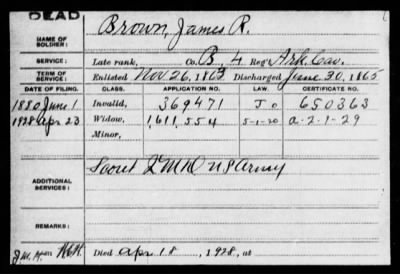 DEAD
NAME OF SOLDIER: Brown, James R.
SERVICE: Late rank, Co. B, 4 Reg't Ark. Cav.
TERM OF SERVICE: Enlisted Nov 26, 1863 Discharged June 30, 1865
DATE OF FILING. CLASS. APPLICATION NO. LAW. CERTIFICATE NO.
1880 June 1 Invalid, 369471 650363
1928 Apr 23 Widow, 1,611,554 5-1-20 a-2-1-29
Minor,
ADDITIONAL SERVICES: Scout QMD US Army
REMARKS:
Died Apr 18, 1928, at